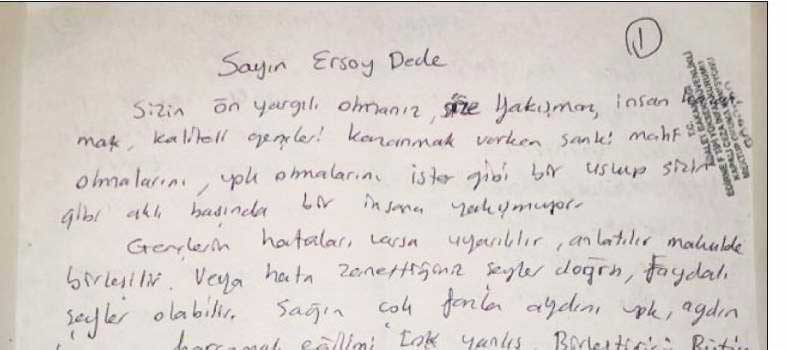 1
Sayın Ersoy Dede
Sizin ön yargılı olmanız, size yakışmaz, insan
mak, kaliteli gençleri kazanmak varken sanki mahf
olmalarını, yok olmalarını ister gibi bir uslup sizin
gibi aklı başında bir insana yakışmıyor.
Gençlerin hataları varsa uyarılır, anlatılır makulde
birleşilir. Veya hata zannettiğiniz şeyler doğru, faydalı
şeyler olabilir. Sağın çok fazla aydını yok, aydın
harcamak eğilimi çok yanlış. Birleştirici